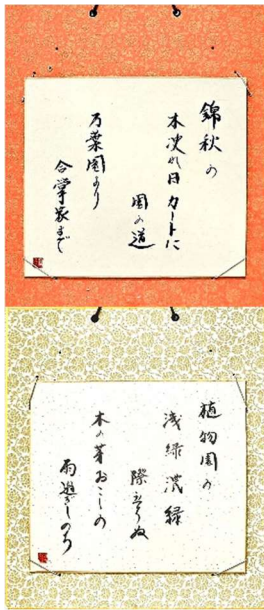 錦秋の
木洩れ日カートに
園の道
万葉園より
合掌家まで
植物園の
浅緑濃緑
際立ちぬ
木の芽おこしの
雨過ぎしのち